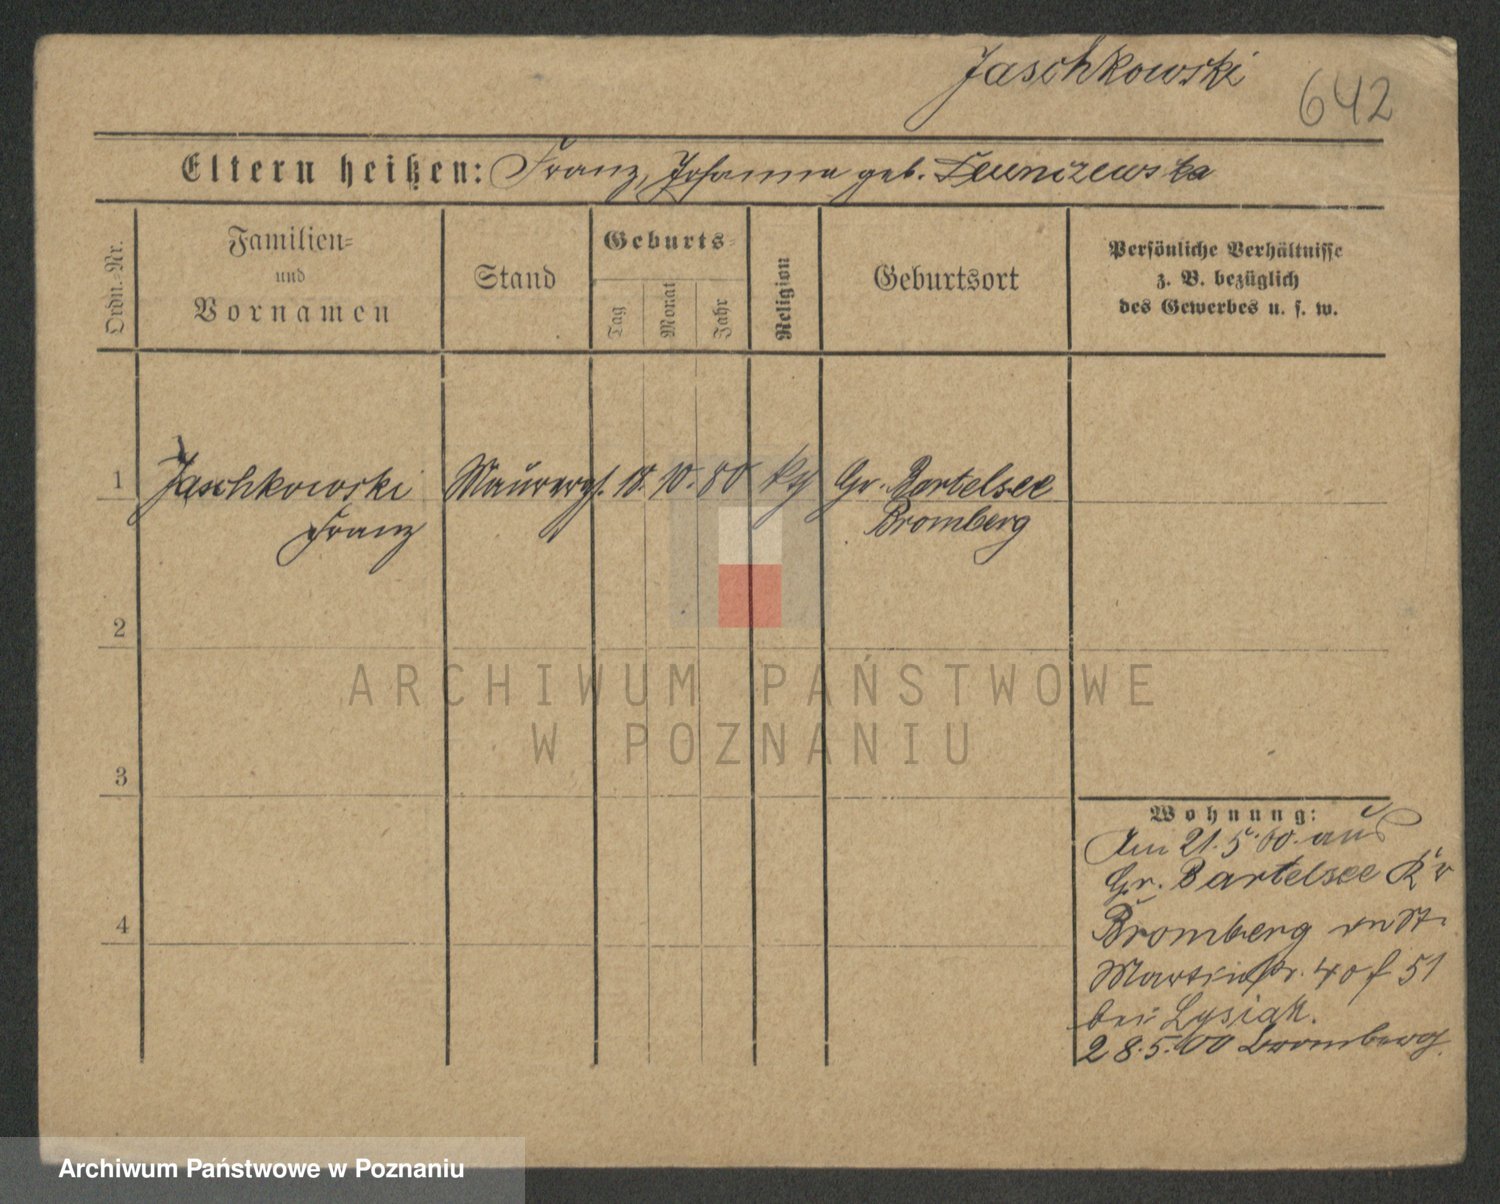 Jaschkowski
642
Eltern heißen: Franz, Johanna geb.
Ordn.-Nr.
Familien-
und
Vornamen
Stand
Geburts-
Tag
Monat
Jahr
Religion
Geburtsort
Persönliche Verhältnisse
z. B. bezüglich
des Gewerbes u. s. w.
1 Jaschkowski Maurerges. 18. 10. 80 kth Gr. Bartelsee
Franz Bromberg
2
ARCHIWUM PAŃSTWOWE
W POZNANIU
3
Wohnung:
Am 21.5.00. aus
Gr. Bartelsee Kr
Bromberg St.
Martinstr. 40 51
bei Lysiak.
28.5.00 Bromberg.
4
Archiwum Państwowe w Poznaniu